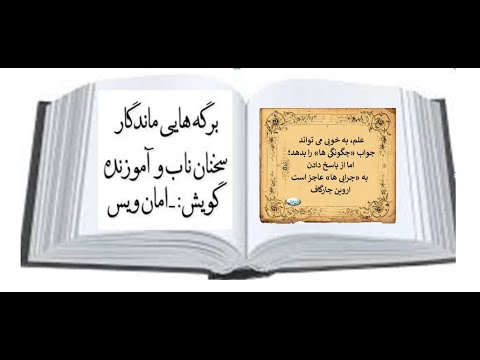 برگه هایی ماندگار
سخنان ناب و آموزنده
گویش:-امان ویس
علم، به خوبی می تواند
جواب «چگونگی ها» را بدهد؛
اما از پاسخ دادن
به «چرایی ها» عاجز است
اروین چارگاف